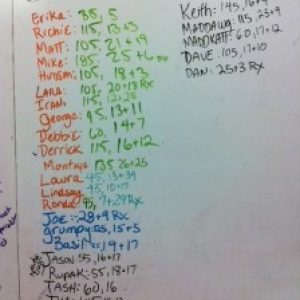 Erika: 35, 5
Richie: 115, 13+3
Matt: 105, 21+19
Mike: 185, 25+6 Rx
Hudson: 105, 18+3
Lara: 105, 20+18 Rx
Iran: 115, 12+28
George: 95, 13+11
Debbie: 60, 14+7
Derrick 115, 16+12
Montaye 135 26+25
Laura 45, 13+34
Lindsay 45, 10+17
Ronda 45, 7+29 Rx
Joe: 28+9 Rx
grumpy: 95, 15+5
Basil 19+17
JASON: 55, 16+17
RUPAK: 55, 18+17
TASH: 60, 16
Keith: 145, 16+9
MADDAWG 115, 23+9
MADDKATT: 60, 17+12
DAVE: 105, 17+10
DAN: 25+3 Rx